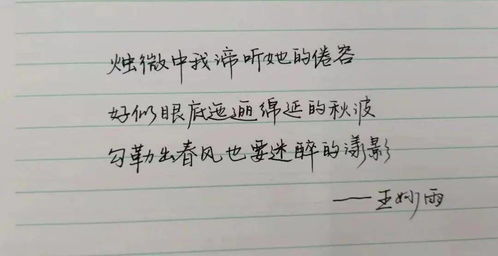 烛微中我谛听她的倦容
好似眼底迤逦绵延的秋波
勾勒出春风也要迷醉的漾影
——王妙雨